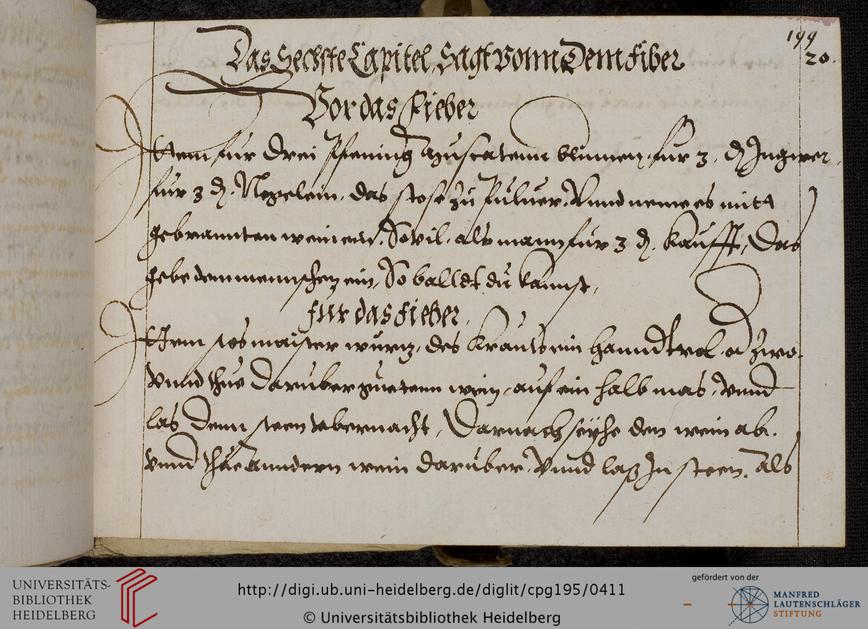 199
20.
Das Sechste Capitel, Sagt vonn Dem fiber
Vor das Fieber
Item fur drei pfening Muscatenn blumen, fur 3 ₰ Ingwer,
fur 3 ₰. Negelein, das stoß zu puluer, Vnnd nemes mitt
gebranntten wein ein, Souil als mann fur 3 ₰. kaufft, Das
gebe dem menschen ein, So balldt du kannst,
fur das fieber,
Item stos maister wurtz, des krauts ein hanndtvol, od zwo.
vnnd thue daruber guetenn wein, auf ein halb mas, vnnd
las denn steen vbernacht, Darnach seyhe den wein ab.
vnnd thue anndern wein daruber, Vnnd laß In steen, als
UNIVERSITÄTS-
BIBLIOTHEK
HEIDELBERG
http://digi.ub.uni-heidelberg.de/diglit/cpg195/0411
© Universitätsbibliothek Heidelberg
gefördert von der
MANFRED
LAUTENSCHLÄGER
STIFTUNG